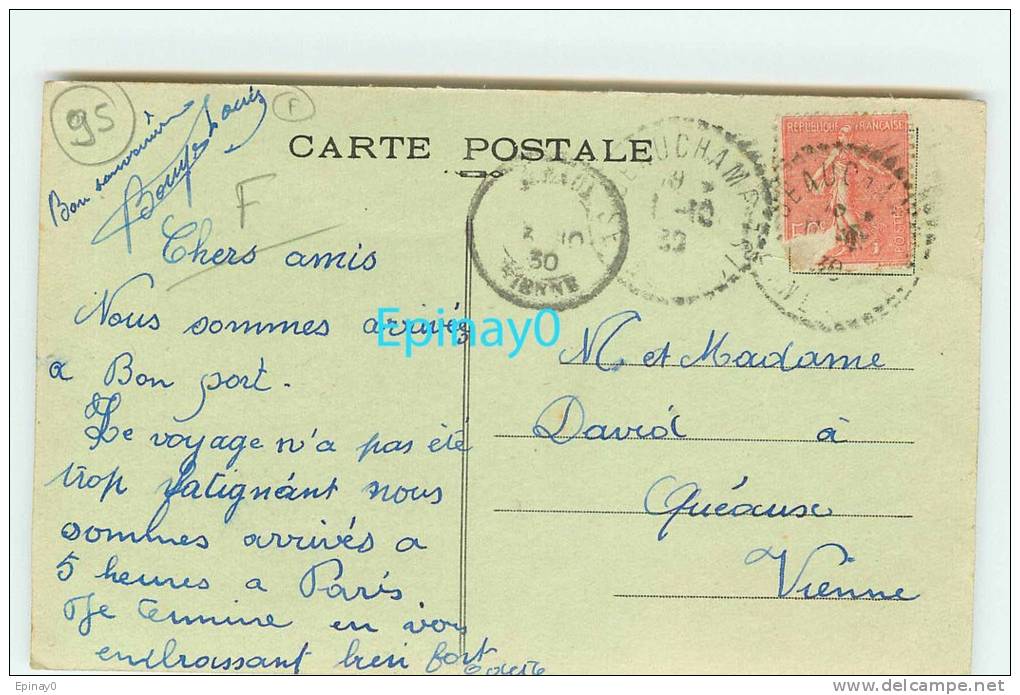 95
F
Bon souvenir
Louis
F
CARTE POSTALE
BEAUCHAMP
10
30
3 10
30
VIENNE
REPUBLIQUE FRANÇAISE
BEAUCHAMP
Chers amis
Nous sommes arrivés
a Bon port.
Le voyage n'a pas été
trop fatignant nous
sommes arrivés a
5 heures a Paris
Je termine en vous
embrassant bien fort
M et Madame
David à
Quéaux
Vienne
Epinay0
Epinay0
www.delcampe.net